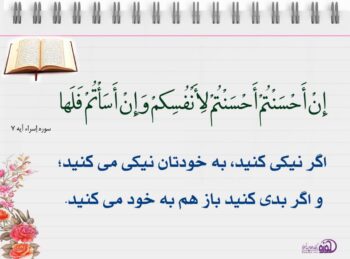 إِنْ أَحْسَنْتُمْ أَحْسَنْتُمْ لِأَنْفُسِكُمْ وَإِنْ أَسَأْتُمْ فَلَهَا
سوره إسراء آیه ۷
اگر نیکی کنید، به خودتان نیکی می کنید؛
و اگر بدی کنید باز هم به خود می کنید.